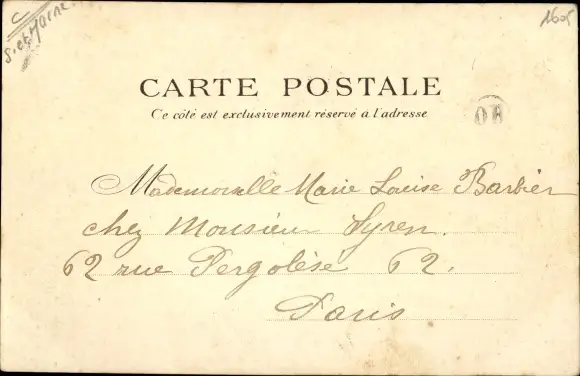 C
S. et Marne
1605
CARTE POSTALE
Ce côté est exclusivement réservé à l'adresse
OB
Mademoiselle Marie Louise Barbier
chez Monsieur Syren.
62 rue Pergolèse 62.
Paris